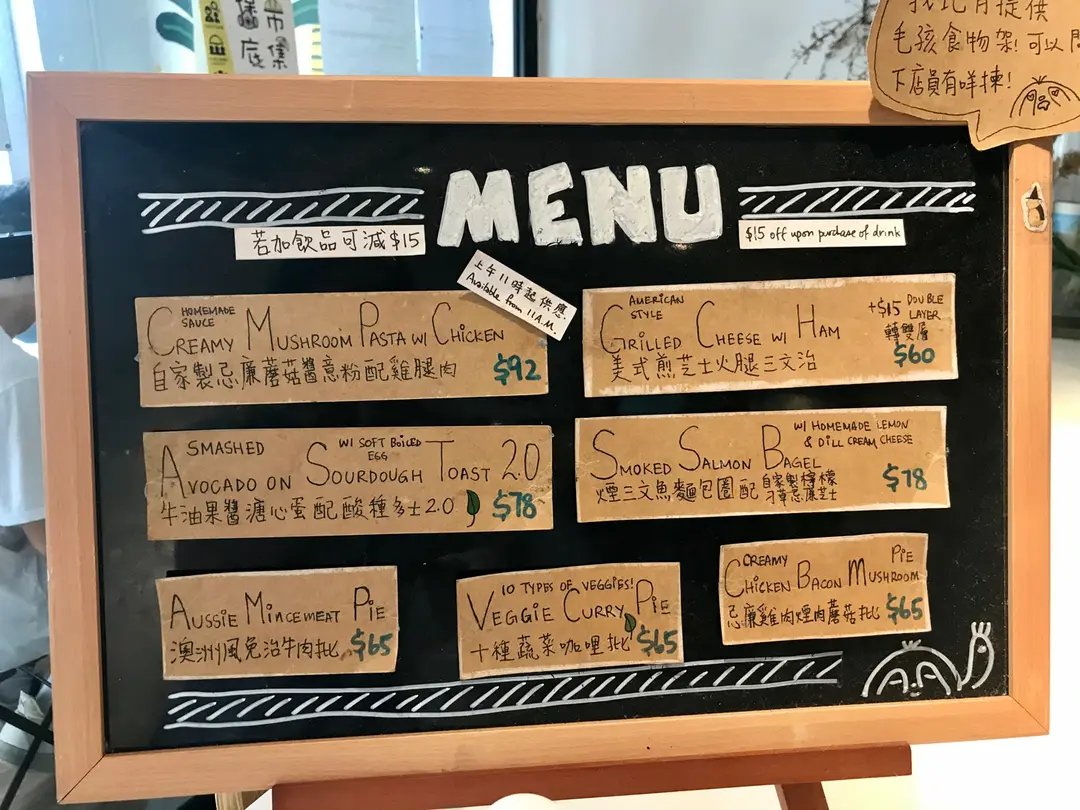 市集
底
我地有提供
毛孩食物架!可以問
下店員有咩揀!
MENU
若加飲品可減$15
$15 off upon purchase of drink
上午11時起供應
Available from 11A.M.
HOMEMADE
SAUCE
CREAMY MUSHROOM PASTA W/ CHICKEN
自家製忌廉蘑菇醬意粉配雞腿肉 $92
AMERICAN
STYLE
GRILLED CHEESE W/ HAM
+$15 DOUBLE
LAYER
轉雙層
美式煎芝士火腿三文治 $60
SMASHED
W/ SOFT BOILED
EGG
AVOCADO ON SOURDOUGH TOAST 2.0
牛油果醬溏心蛋配酸種多士2.0 $78
W/ HOMEMADE LEMON
& DILL CREAM CHEESE
SMOKED SALMON BAGEL
煙三文魚麵包圈配自家製檸檬
刁草忌廉芝士 $78
AUSSIE MINCEMEAT PIE
澳洲風免治牛肉批 $65
10 TYPES OF VEGGIES!
VEGGIE CURRY PIE
十種蔬菜咖哩批 $65
CREAMY
CHICKEN BACON MUSHROOM PIE
忌廉雞肉煙肉蘑菇批 $65